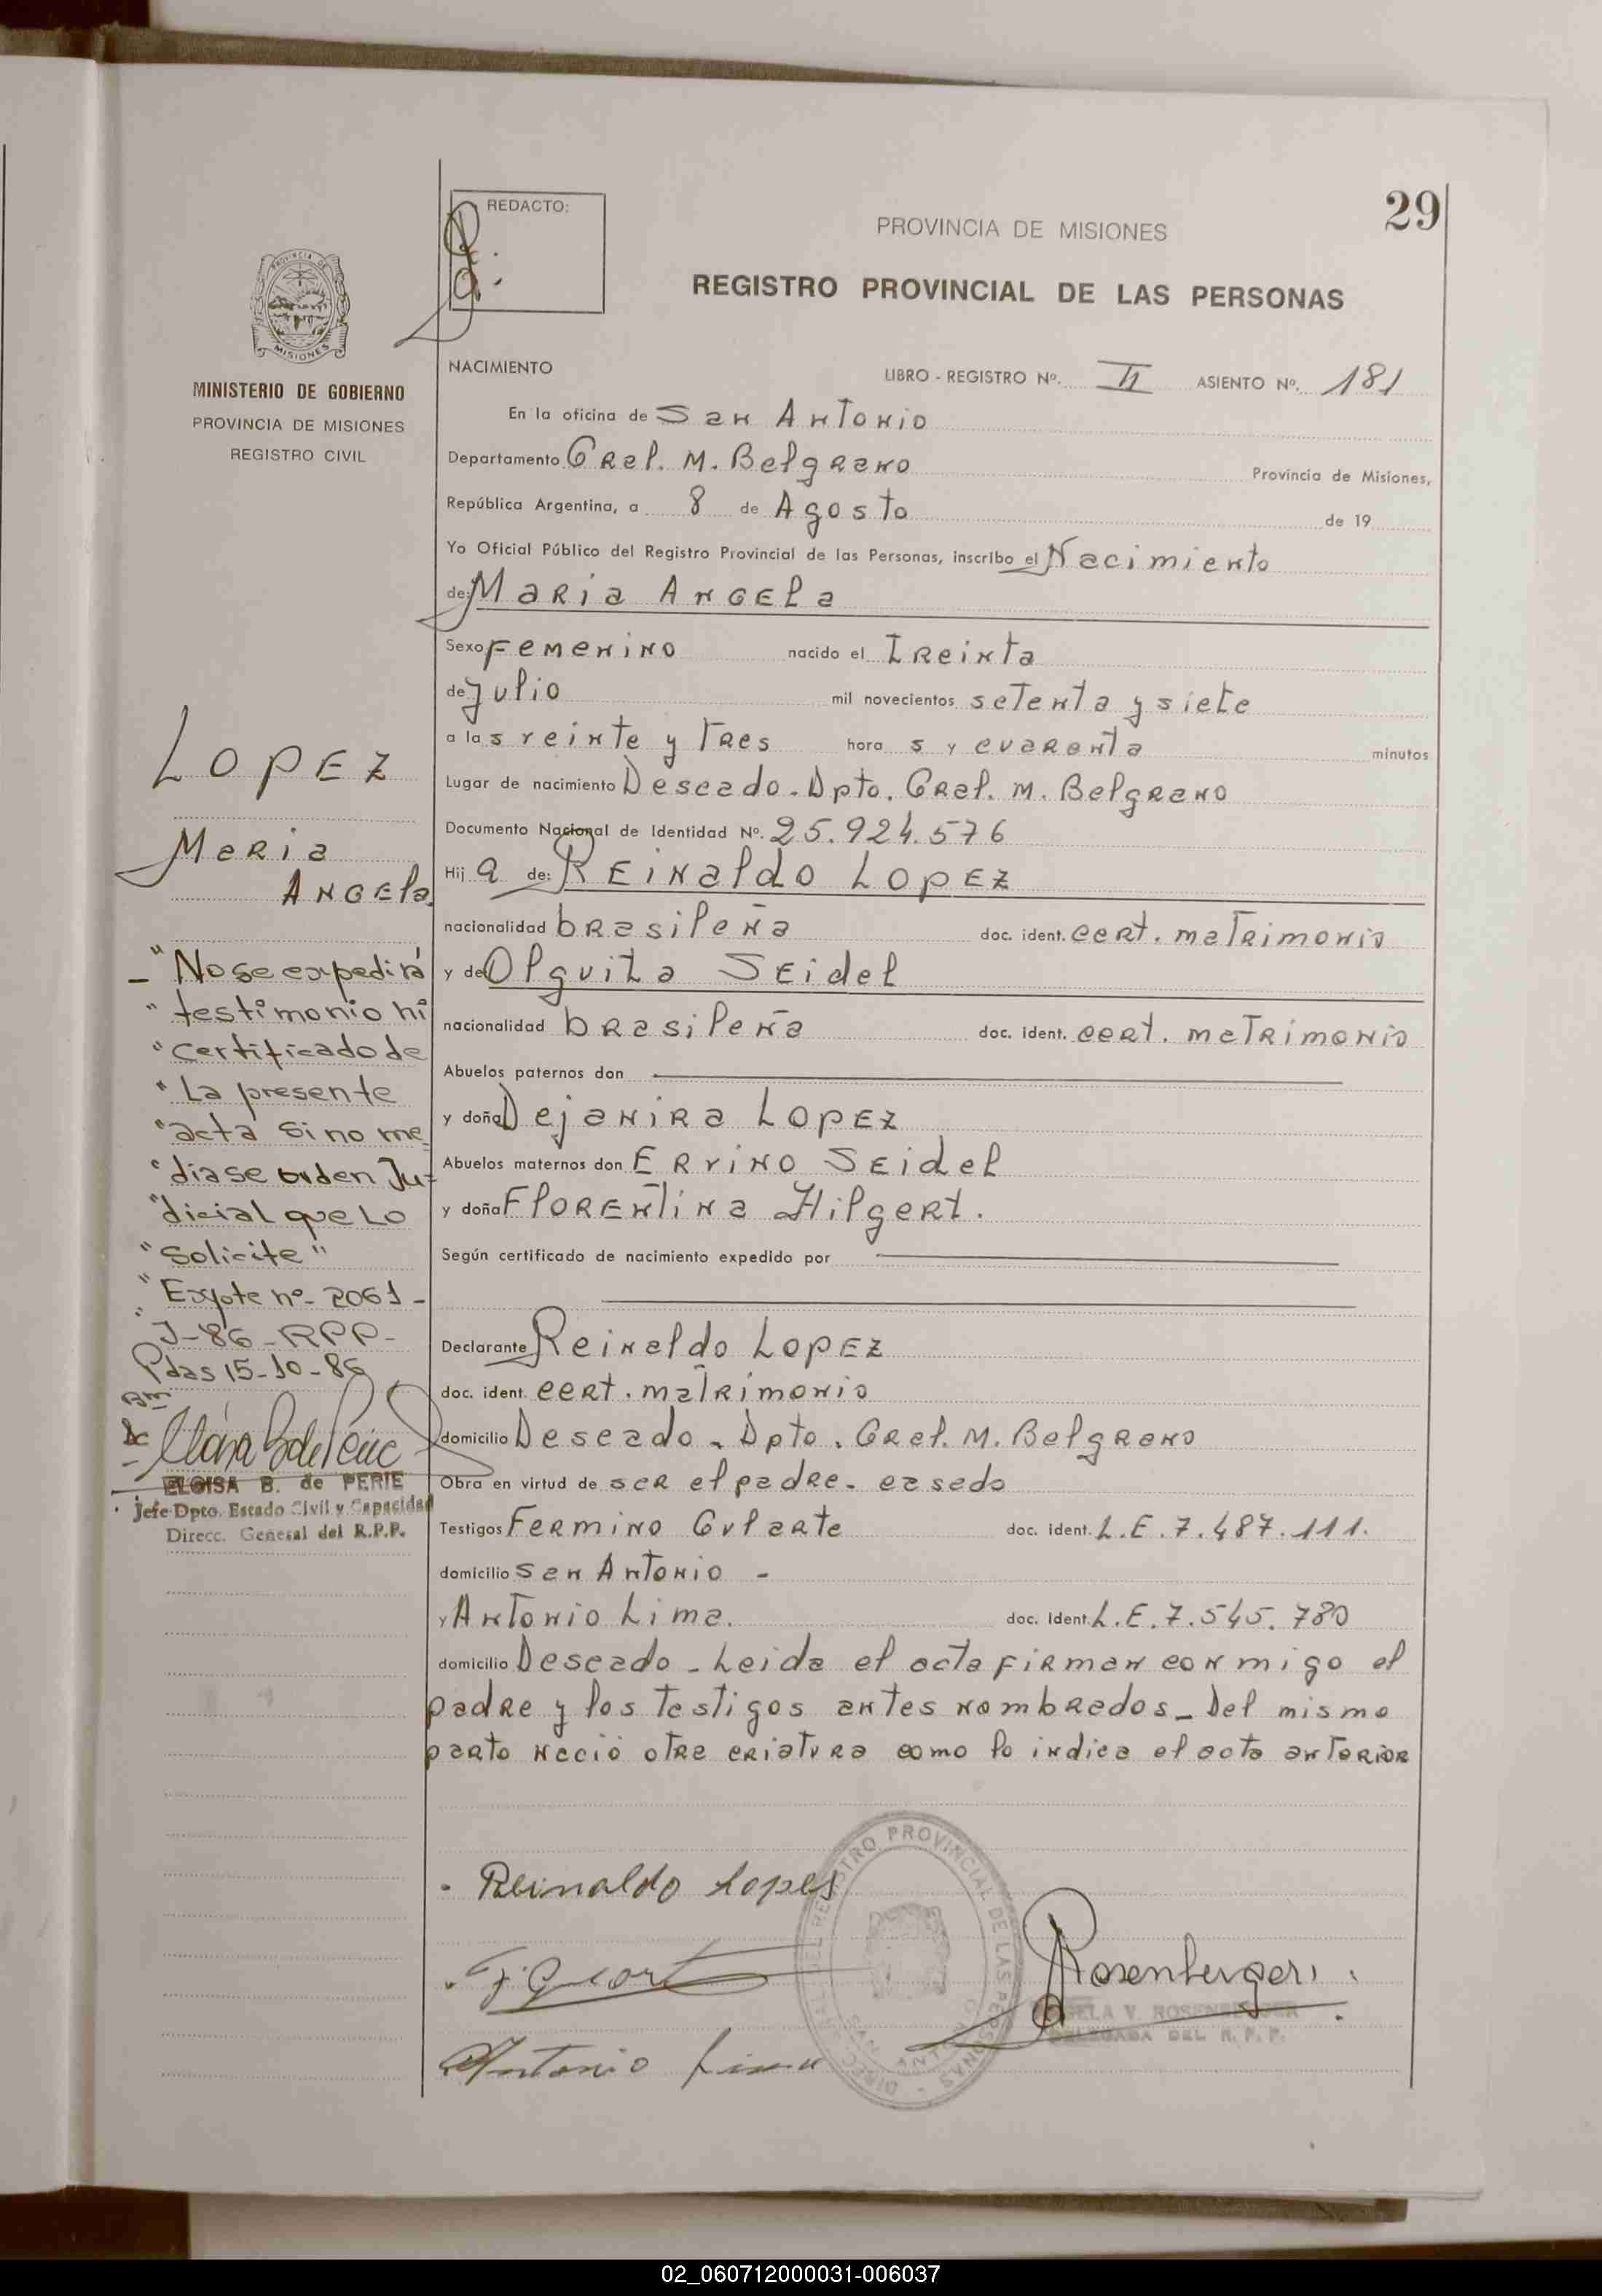 29
REDACTO:
PROVINCIA DE MISIONES
REGISTRO PROVINCIAL DE LAS PERSONAS
PROVINCIA DE
MISIONES
MINISTERIO DE GOBIERNO
PROVINCIA DE MISIONES
REGISTRO CIVIL
NACIMIENTO LIBRO - REGISTRO Nº. II ASIENTO Nº. 181
En la oficina de San Antonio
Departamento Gral. M. Belgrano Provincia de Misiones,
República Argentina, a 8 de Agosto de 19
Yo Oficial Público del Registro Provincial de las Personas, inscribo el Nacimiento
de: Maria Angela
Sexo Femenino nacido el Treinta
de Julio mil novecientos setenta y siete
a las veinte y Tres horas y cuarenta minutos
Lugar de nacimiento Deseado. Dpto. Gral. M. Belgrano
Documento Nacional de Identidad Nº. 25.924.576
Hija de: Reinaldo Lopez
nacionalidad brasileña doc. ident. cert. matrimonio
y de Olguita Seidel
nacionalidad brasileña doc. ident. cert. matrimonio
Abuelos paternos don
y doña Dejanira Lopez
Abuelos maternos don Ervino Seidel
y doña Florentina Hilgert.
Según certificado de nacimiento expedido por
Declarante Reinaldo Lopez
doc. ident. cert. matrimonio
domicilio Deseado. Dpto. Gral. M. Belgrano
Obra en virtud de ser el padre. casado
Testigos Fermino Gularte doc. ident. L.E. 7.487.111.
domicilio San Antonio -
y Antonio Lima. doc. Ident. L.E. 7.545.780
domicilio Deseado - Leida el acta firman conmigo el
padre y los Testigos antes nombrados - Del mismo
parto nació otra criatura como lo indica el acta anterior
Lopez
Maria
Angela
- "No se expedirá
" testimonio ni
" Certificado de
" La presente
" acta si no me
" diase orden Ju-
" dicial que Lo
" Solicite"
" Expte nº- 2061 -
" J-86-RPP-
Pdas 15-10-86
ELOISA B. de PERIE
Jefe Dpto. Estado Civil y Capacidad
Direcc. General del R.P.P.
Reinaldo Lopes
F. Gularte
Antonio Lima
Rosenberger
ROSENBERGER
DELEGADA DEL R. P. P.
DIREC. GRAL. DEL REGISTRO PROVINCIAL DE LAS PERSONAS
02_060712000031-006037